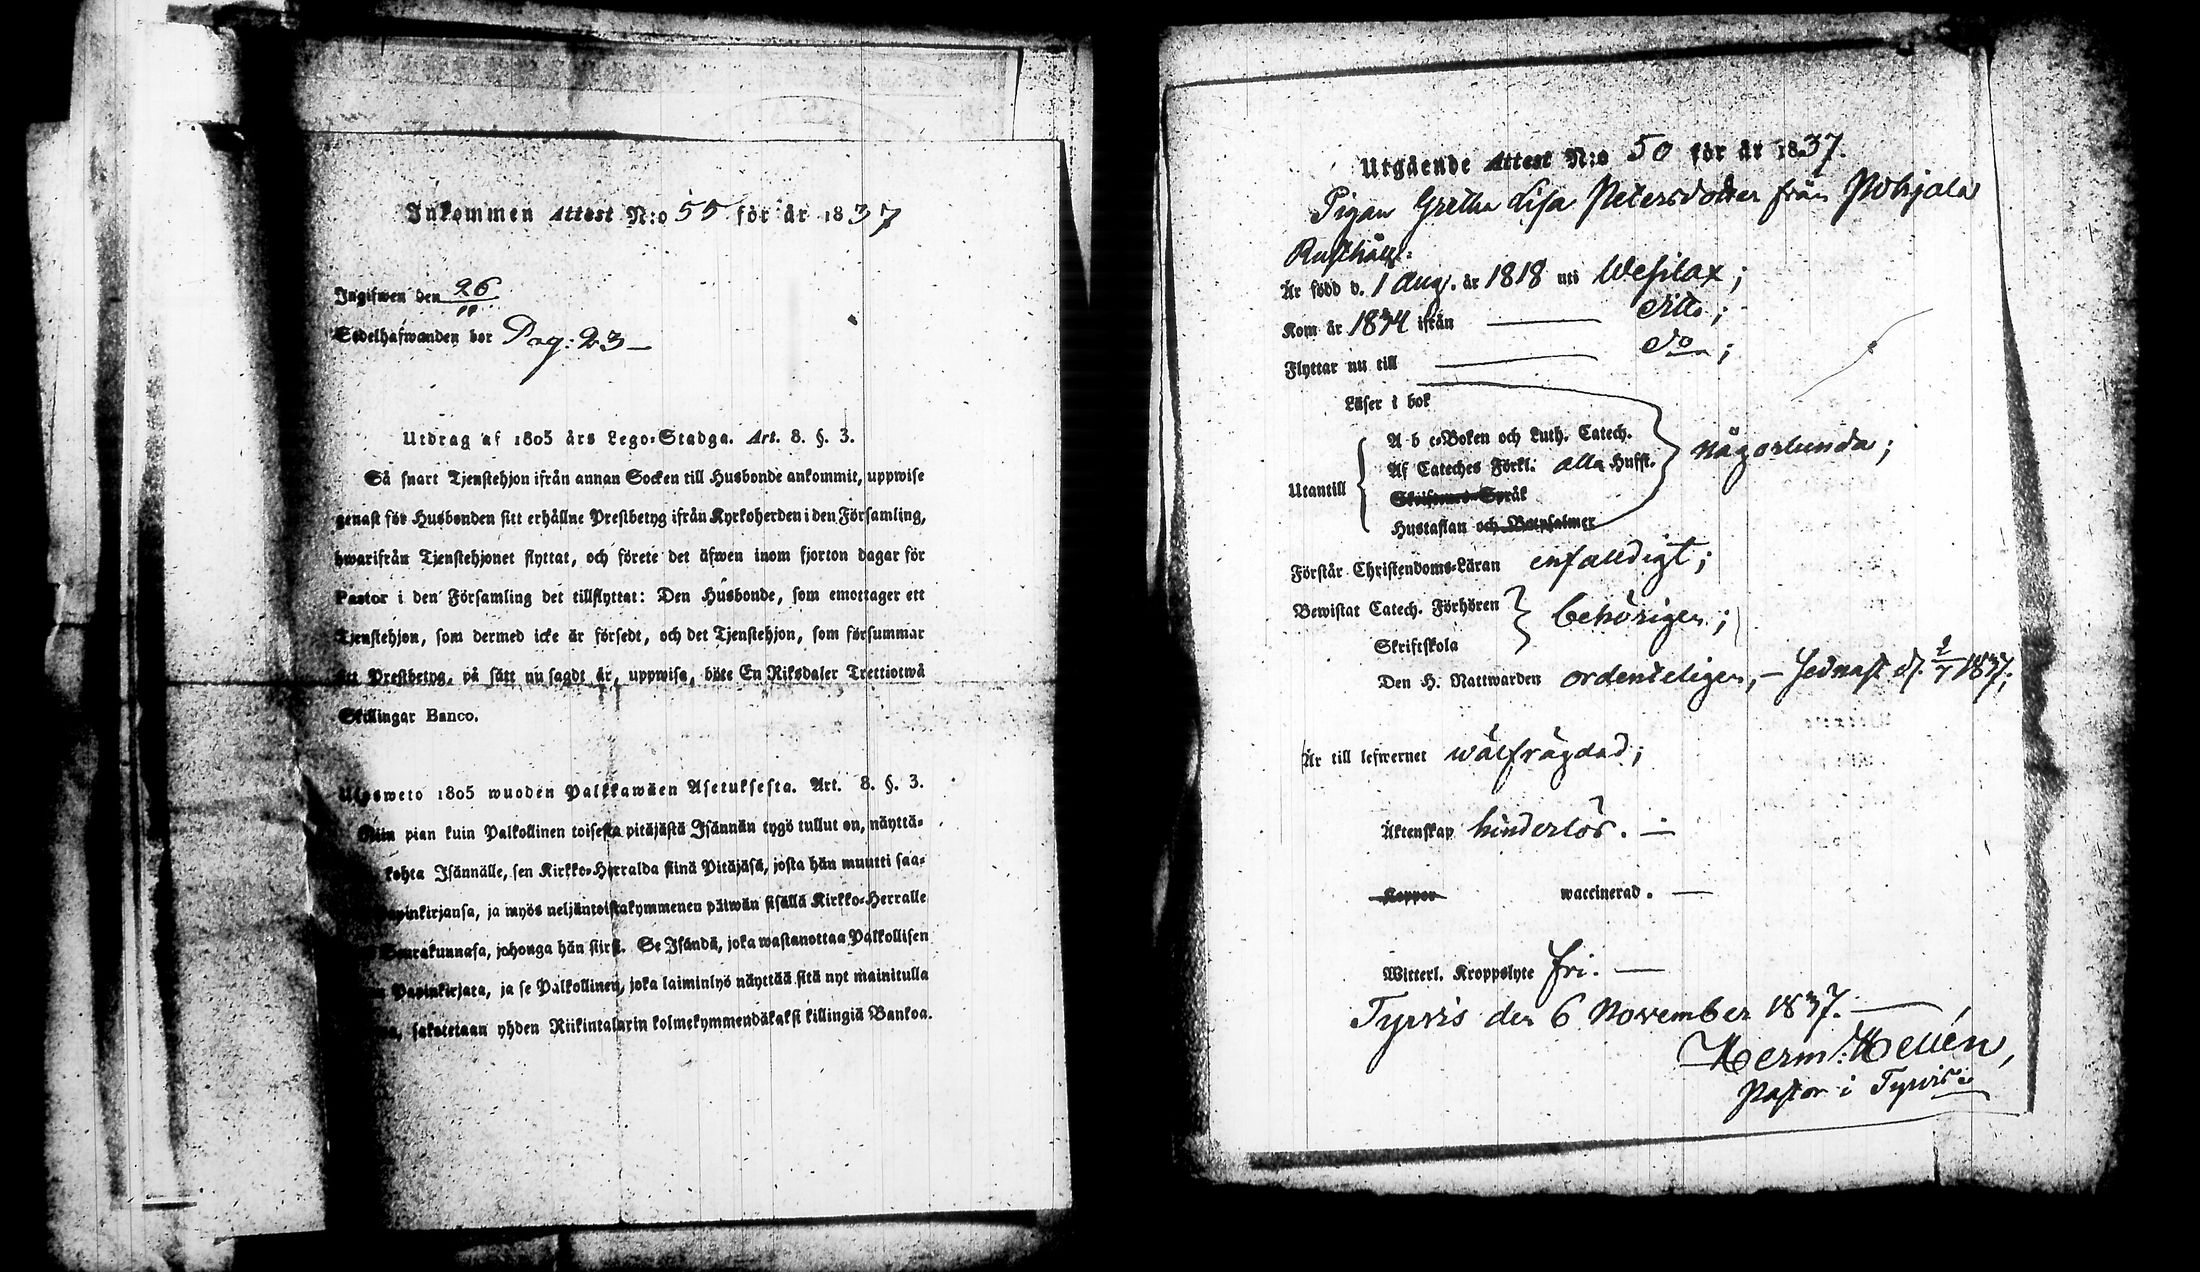 Inkommen Attest N:o 55 för år 1837
Ingifwen den 26/11
Sedelhafwanden bor Pag: 23
Utdrag af 1805 års Lego-Stadga. Art. 8. §. 3.
Så snart Tjenstehjon ifrån annan Socken till Husbonde ankommit, uppwise
genast för Husbonden sitt erhållne Prestbetyg ifrån Kyrkoherden i den Församling,
hwarifrån Tjenstehjonet flyttat, och förete det äfwen inom fjorton dagar för
Pastor i den Församling det tillflyttat: Den Husbonde, som emottager ett
Tjenstehjon, som dermed icke är försedt, och det Tjenstehjon, som försummar
Prestbetyg, på sätt nu sagdt är, uppwisa, böte En Riksdaler Trettiotwå
Skillingar Banco.
Ulosweto 1805 wuoden Palkkawäen Asetuksesta. Art. 8. §. 3.
Niin pian kuin Palkollinen toisesta pitäjästä Isännän tygö tullut on, näyttä-
kohta Isännälle, sen Kirkko-Herralda siinä Pitäjäsä, josta hän muutti saa-
ja myös neljäntoistakymmenen päiwän sisällä Kirkko-Herralle
Seurakunnasa, johonga hän siirsi. Se Isändä, joka wastanottaa Palkollisen
Papinkirjata, ja se Palkollinen, joka laiminlyö näyttää sitä nyt mainitulla
sakotetaan yhden Riikintalarin kolmekymmendäkaksi killingiä Bankoa.
Utgående Attest N:o 50 för år 1837.
Pigan Gretha Lisa Petersdotter från Pohjala
Rusthåll:
Är född d. 1 Aug. år 1818 uti Wesilax;
Kom år 1834 ifrån — ditto;
Flyttar nu till — do;
Läser i bok
A b c-Boken och Luth. Catech.
Af Cateches Förkl. alla Hufst. någorlunda;
Utantill
Skriftenes-Språk
Hustaflan och Botpsalmer
Förstår Christendoms-Läran enfalldigt;
Bewistat Catech. Förhören behörigen;
Skriftskola
Den H. Nattwarden ordenteligen, — sednast d. 2/7 1837;
Är till lefwernet wälfrägdad;
Äktenskap hinderlös. —
Koppor waccinerad. —
Witterl. Kroppslyte fri. —
Tyrvis den 6 November 1837. —
Herm: Hellén,
Pastor i Tyrvis